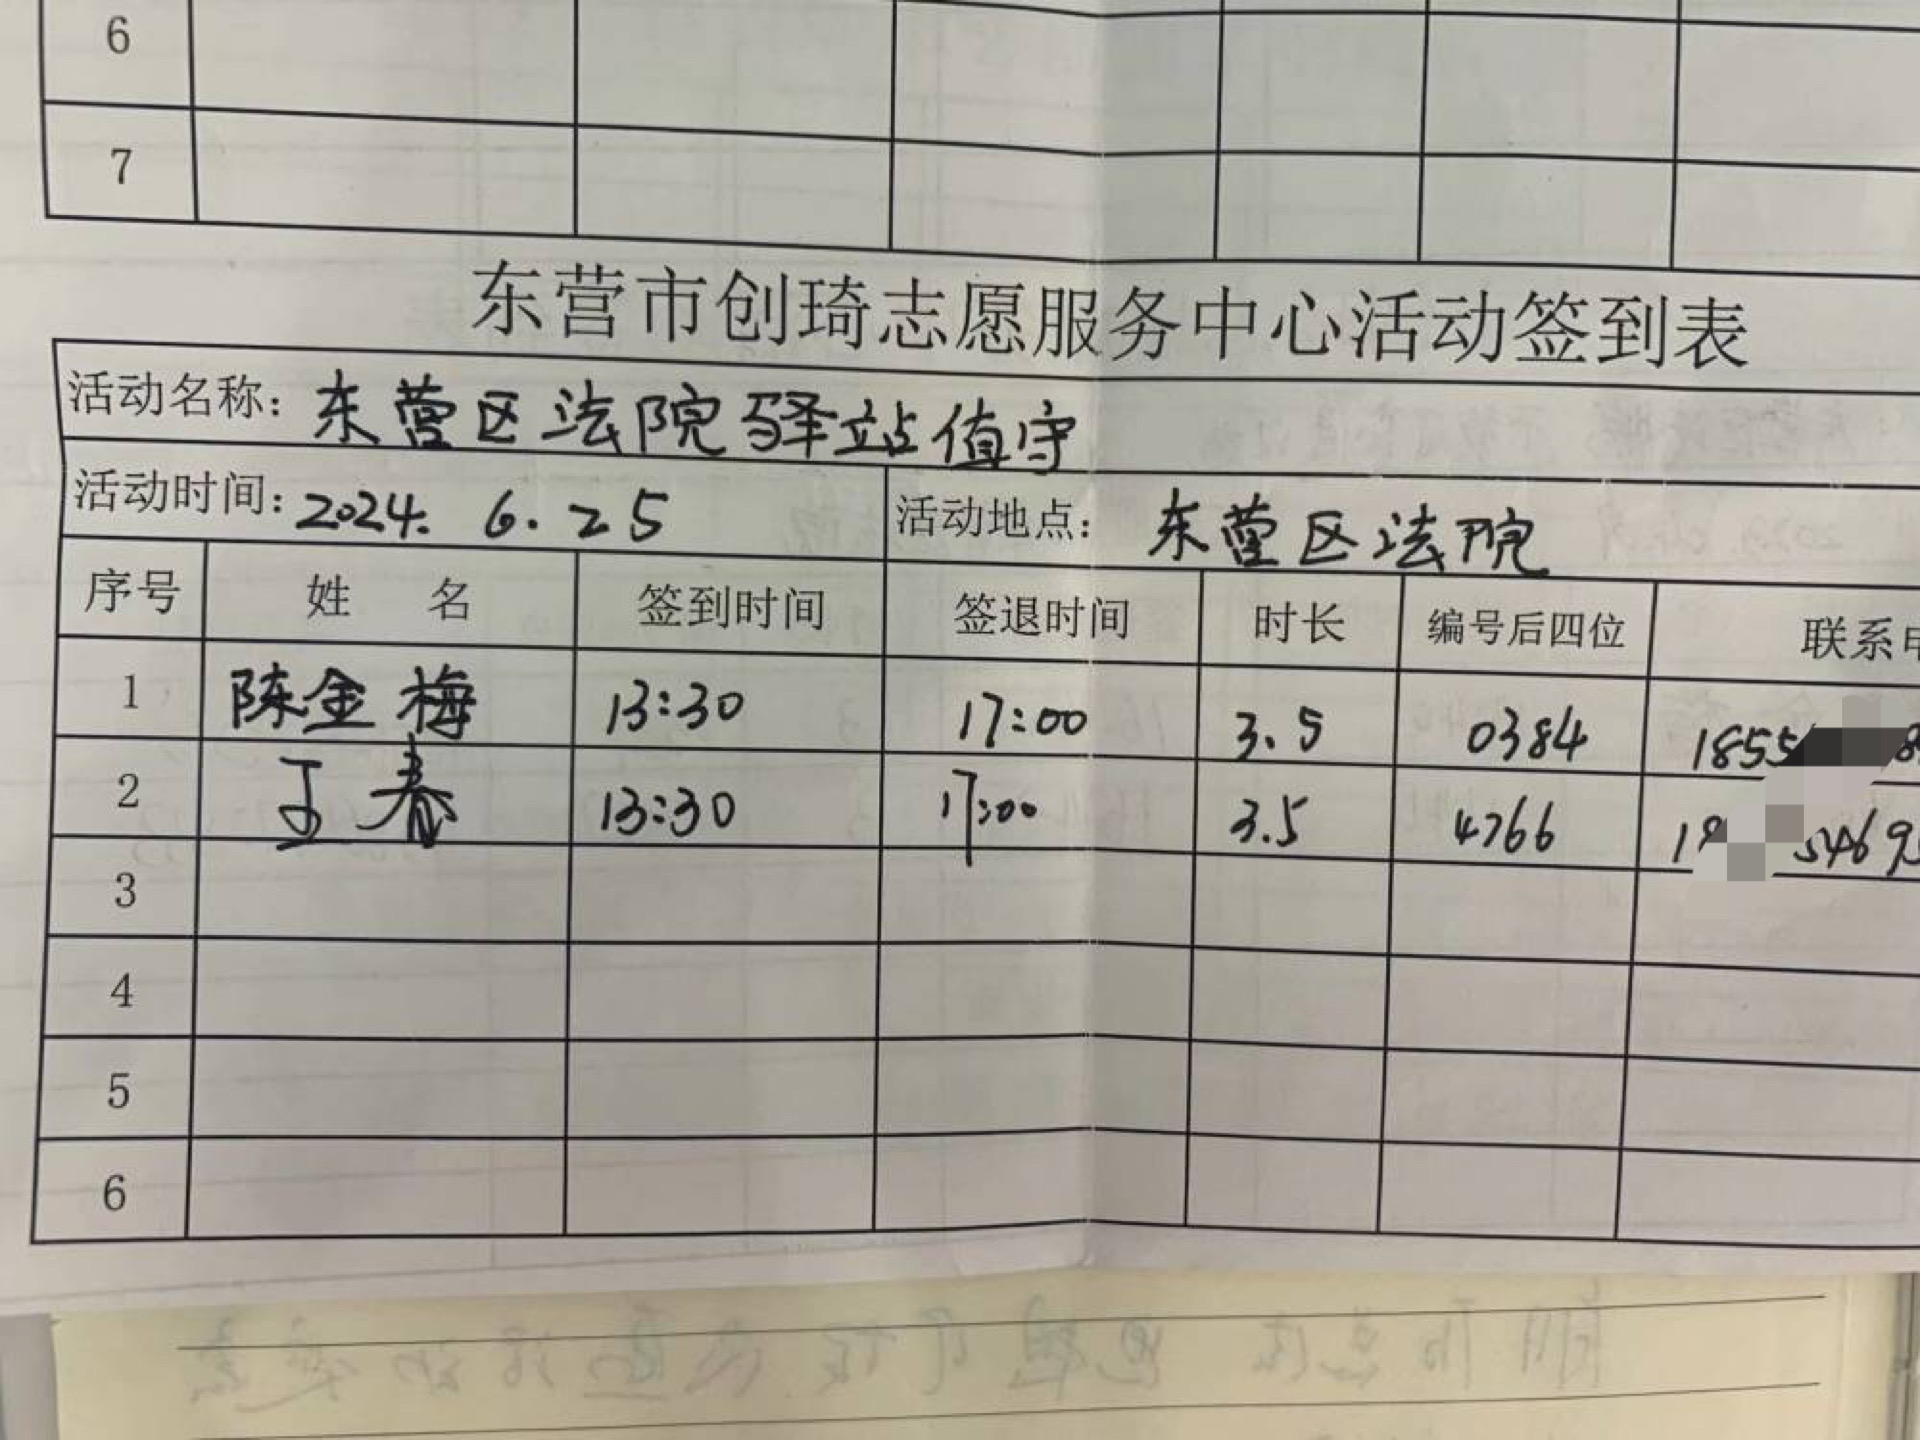 6
7
东营市创琦志愿服务中心活动签到表
活动名称: 东营区法院驿站值守
活动时间: 2024. 6. 25 活动地点: 东营区法院
序号 姓 名 签到时间 签退时间 时长 编号后四位 联系
1 陈金梅 13:30 17:00 3.5 0384 1855
2 王春 13:30 17:00 3.5 4766 5469
3
4
5
6